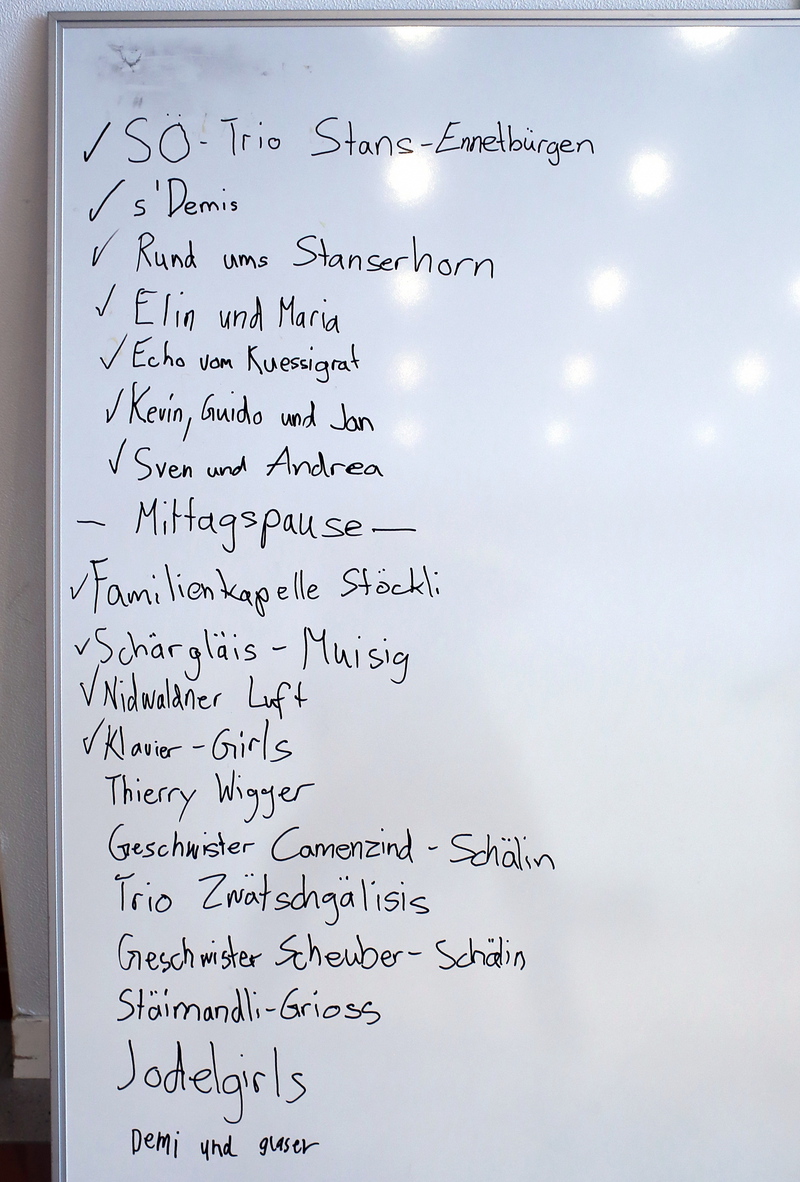 ✓ SÖ-Trio Stans-Ennetbürgen
✓ s'Demis
✓ Rund ums Stanserhorn
✓ Elin und Maria
✓ Echo vom Kuessigrat
✓ Kevin, Guido und Jan
✓ Sven und Andrea
— Mittagspause —
✓ Familienkapelle Stöckli
✓ Schärgläis - Muisig
✓ Nidwaldner Luft
✓ Klavier - Girls
Thierry Wigger
Geschwister Camenzind - Schälin
Trio Zwätschgälisis
Geschwister Scheuber - Schälin
Stäimandli-Grioss
Jodelgirls
Demi und glaser